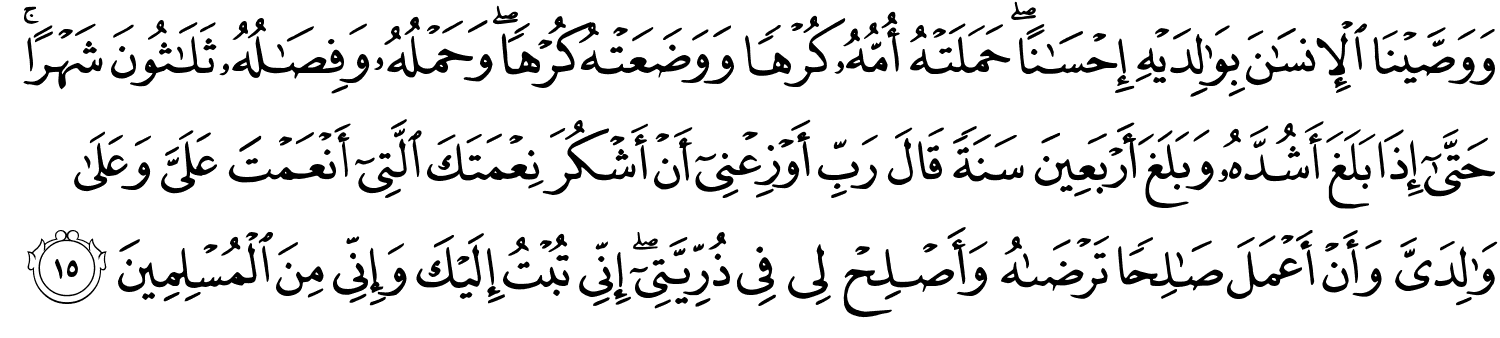 وَوَصَّيْنَا ٱلْإِنسَـٰنَ بِوَٰلِدَيْهِ إِحْسَـٰنًا ۖ حَمَلَتْهُ أُمُّهُۥ كُرْهًا وَوَضَعَتْهُ كُرْهًا ۖ وَحَمْلُهُۥ وَفِصَـٰلُهُۥ ثَلَـٰثُونَ شَهْرًا ۚ
حَتَّىٰٓ إِذَا بَلَغَ أَشُدَّهُۥ وَبَلَغَ أَرْبَعِينَ سَنَةً قَالَ رَبِّ أَوْزِعْنِىٓ أَنْ أَشْكُرَ نِعْمَتَكَ ٱلَّتِىٓ أَنْعَمْتَ عَلَىَّ وَعَلَىٰ
وَٰلِدَىَّ وَأَنْ أَعْمَلَ صَـٰلِحًا تَرْضَىٰهُ وَأَصْلِحْ لِى فِى ذُرِّيَّتِىٓ ۖ إِنِّى تُبْتُ إِلَيْكَ وَإِنِّى مِنَ ٱلْمُسْلِمِينَ ١٥